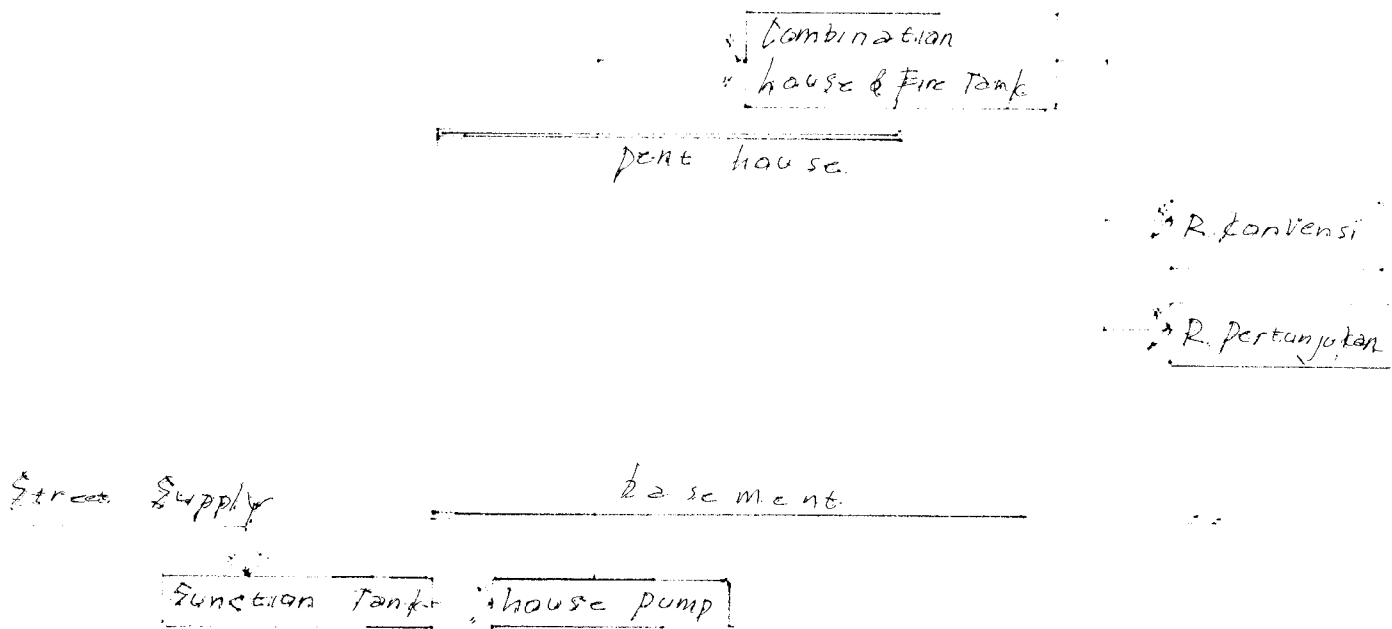 Combination
house & Fire Tank
pent house
R. Konvensi
R. Pertunjukan
Street Supply
basement
Sunction Tank
house pump